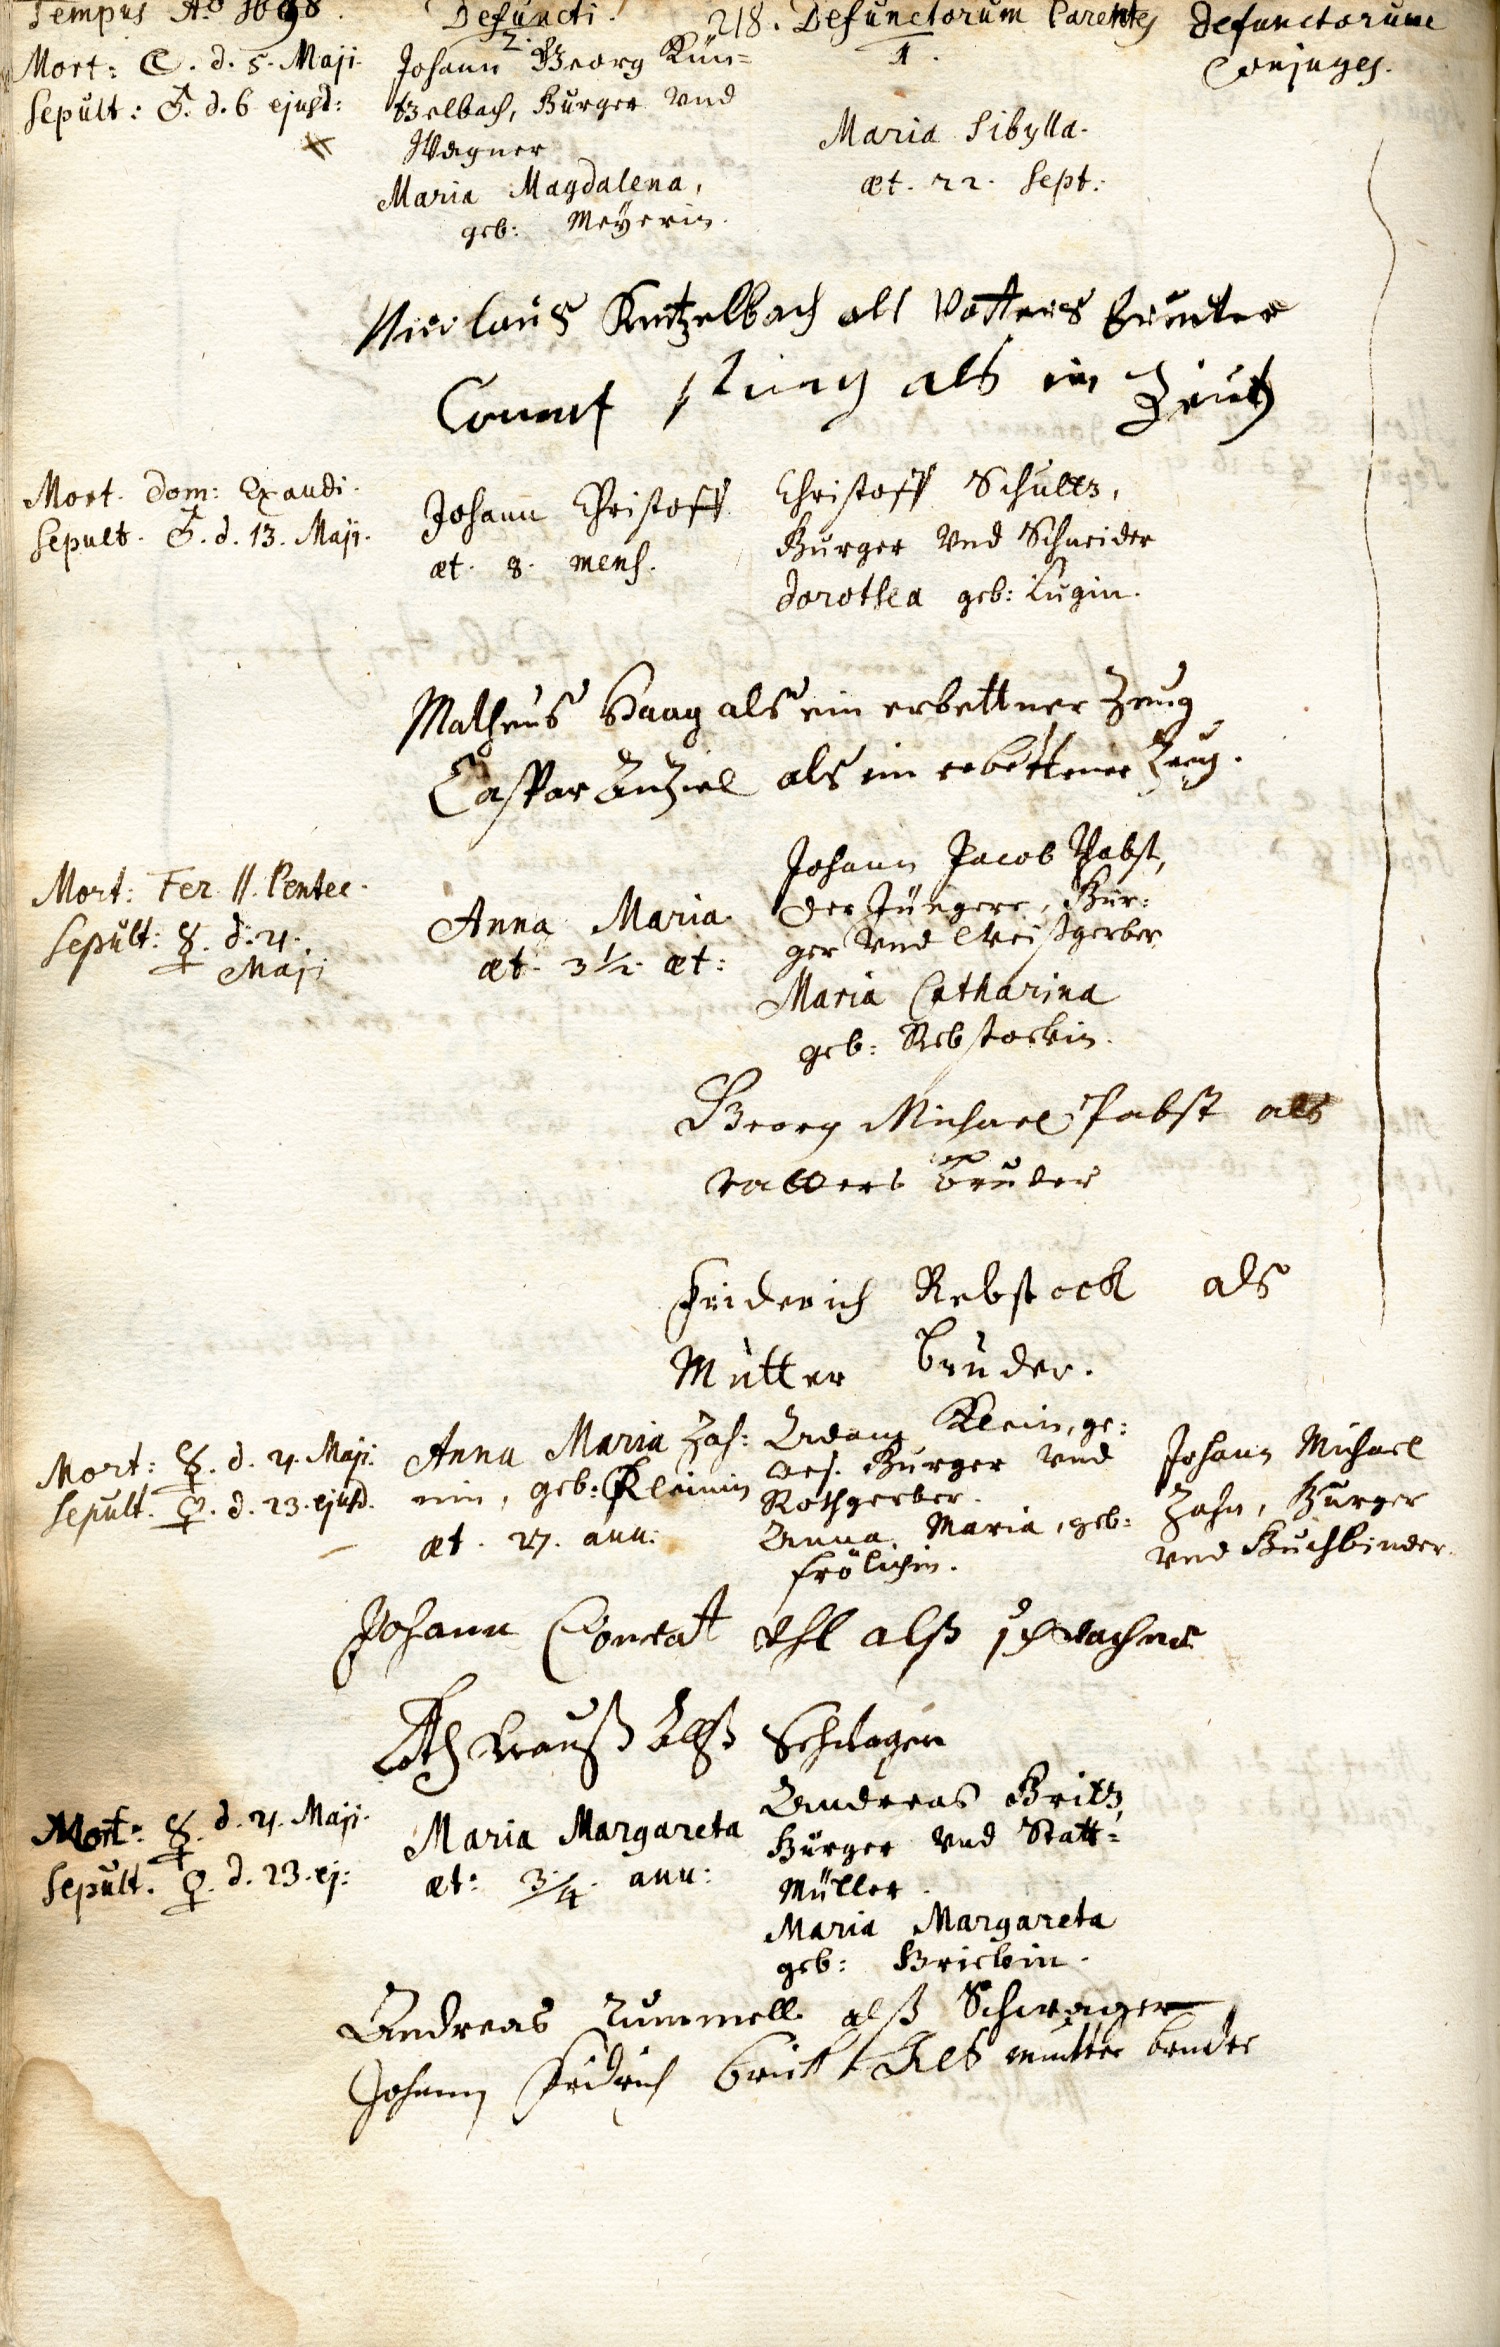 Tempus Ao 1698.
Defuncti.
218. Defunctorum Parentes
Defunctorum
Conjuges.
2.
1.
Mort: ☾. d. 5. Maji.
Sepult: ♂. d. 6 ejusd:
Johann Georg Kün=
tzelbach, Burger Vnd
Wagner
Maria Magdalena,
geb: Meÿerin.
Maria Sibylla.
æt. 22. Sept:
Nicolaus Kintzelbach als Vatters bruder
als ein Zeug
Mort. Dom: Exaudi.
Sepult. ♂. d. 13. Maji.
Johann Christoff
æt. 8. mens.
Christoff Schultz,
Burger Vnd Schneider
Dorothea geb: Lugin.
Matheus Haag als ein erbettner Zeug
Caspar als ein erbettner Zeug.
Mort: Fer. II. Pentec.
Sepult: ☿. d. 21.
Maji
Anna Maria.
æt. 3 1/2. æt:
Johann Jacob Pabst,
der Jüngere, Bur:
ger Vnd Weißgerber
Maria Catharina
geb: Rebstockin.
Georg Michael Pabst als
Vatters bruder
Friderich Rebstock als
Mutter bruder.
Mort: ☿. d. 21. Maji.
Sepult. ♀. d. 23. ejusd.
Anna Maria Zah:
nin, geb: Kleinin
æt. 27. ann:
Adam Klein, ge:
wes. Burger Vnd
Rothgerber.
Anna Maria, geb:
Frölichin.
Johann Michael
Zahn, Burger
Vnd Buchbinder.
Johann Conrat alß
alß Schwager
Mort: ☿. d. 21. Maji.
Sepult. ♀. d. 23. ej:
Maria Margareta
æt: 3/4. ann:
Andreas Britz,
Burger Vnd Statt=
Müller.
Maria Margareta
geb: Brickin.
Andreas Rummell alß Schwager
Johann Fridrich Brickh Als mutter bruder